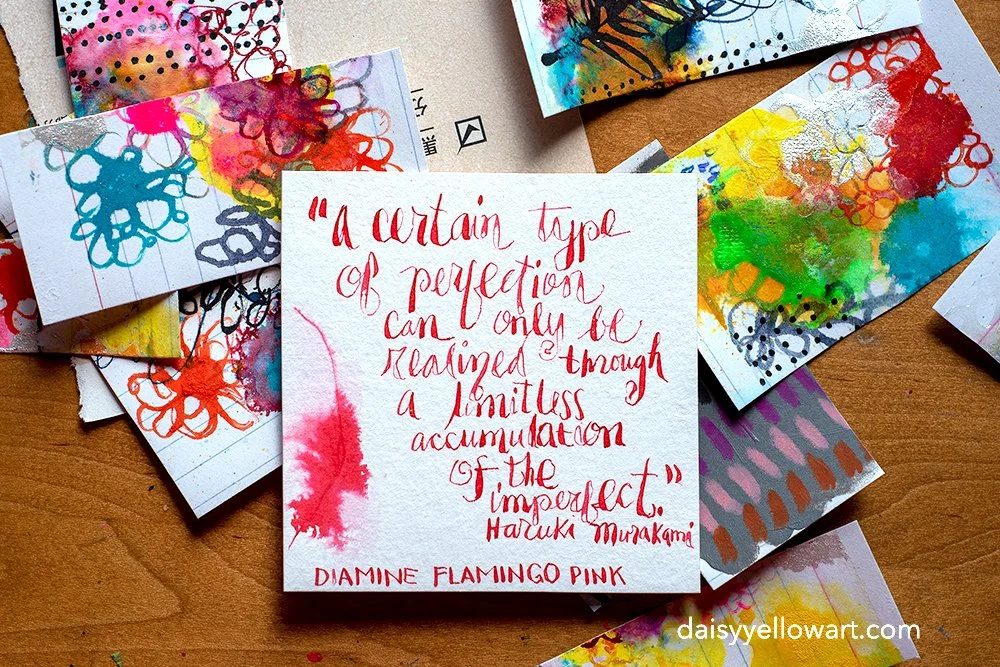 “A certain type
of perfection
can only be
realized through
a limitless
accumulation
of the
imperfect.”
Haruki Murakami
DIAMINE FLAMINGO PINK
daisyyellowart.com